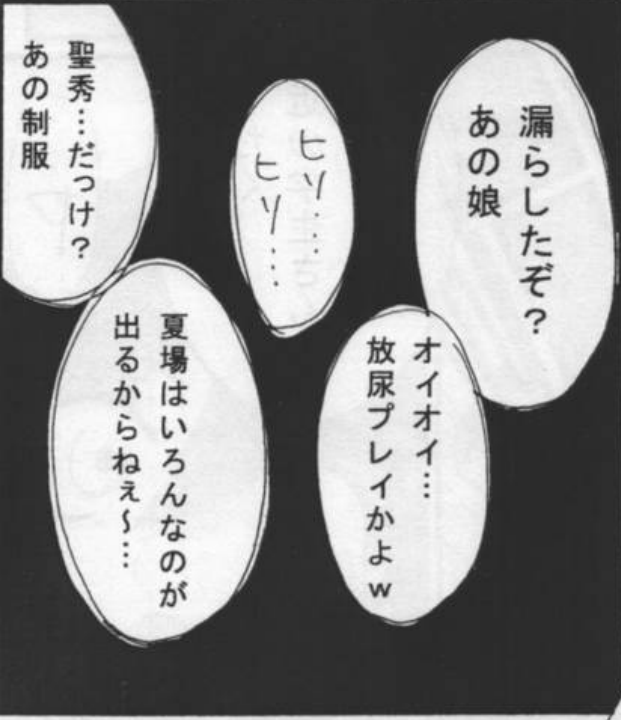 漏らしたぞ？
あの娘
オイオイ…
放尿プレイかよw
ヒソ…
ヒソ…
聖秀…だっけ？
あの制服
夏場はいろんなのが
出るからねぇ～…